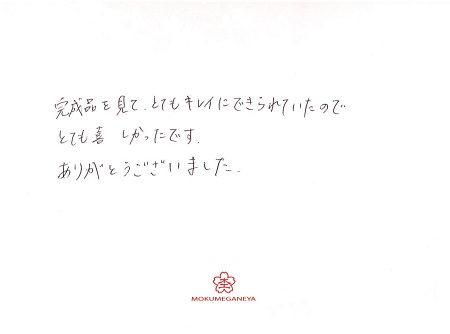 完成品を見て、とてもキレイにできられていたので
とても喜 しかったです.
ありがとうございました.
杢
MOKUMEGANEYA